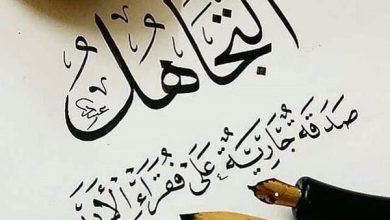 التَّجَاهُلُ
صَدَقَة جَّارِيَّةٌ عَلَى فُقَرَاءِ